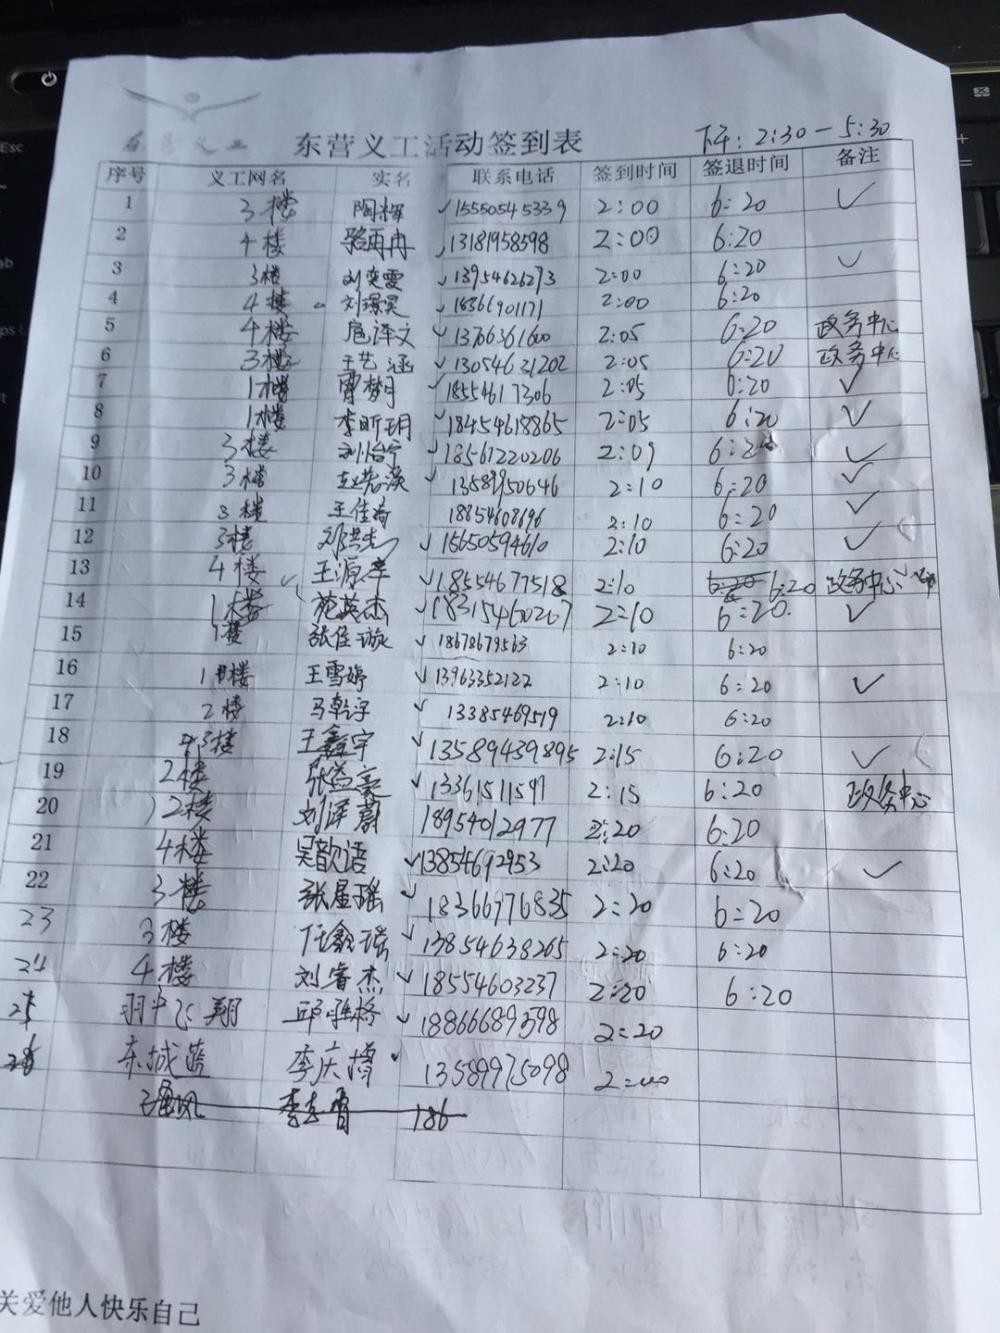 东营义工 东营义工活动签到表 下午：2:30－5:30
序号 义工网名 实名 联系电话 签到时间 签退时间 备注
1 3楼 陶辉 ✓15550545339 2:00 6:20 ✓
2 4楼 骆雨冉 ✓13181958598 2:00 6:20
3 3楼 刘奕雯 ✓13954626293 2:00 6:20 ✓
4 4楼 刘璟昊 ✓18366901171 2:00 6:20
5 4楼 扈译文 ✓13706361600 2:05 6:20 政务中心
6 3楼 王艺涵 ✓13054631202 2:05 6:20 政务中心
7 1楼 曹梦月 ✓18554617306 2:05 6:20 ✓
8 1楼 李昕玥 ✓18454618865 2:05 6:20 ✓
9 3楼 刘怡宁 ✓18561220206 2:09 6:20 ✓
10 3楼 13589950646 2:10 6:20 ✓
11 3楼 王佳奇 18854608696 2:10 6:20 ✓
12 3楼 邓洪志 ✓15650594610 2:10 6:20 ✓
13 4楼 王源 ✓18554677518 2:10 6:20 6:20 政务中心
14 1楼 施英杰 ✓18315460267 2:10 6:20. ✓
15 1楼 张佳璇 ✓18678679563 2:10 6:20
16 1楼 王雪婷 ✓13963352122 2:10 6:20 ✓
17 2楼 马乾宇 ✓13385469519 2:10 6:20
18 3楼 王鑫宇 ✓13589439895 2:15 6:20 ✓
19 2楼 张益豪 ✓13361511591 2:15 6:20 政务中心
20 2楼 刘泽蔚 18954012977 2:20 6:20
21 4楼 吴歆语 ✓13854692953 2:20 6:20 ✓
22 3楼 张星瑶 ✓18366976835 2:20 6:20
23 3楼 任鑫瑞 ✓13854638265 2:20 6:20
24 4楼 刘睿杰 ✓18554603237 2:20 6:20
25 羽中飞翔 邱雅格 ✓18866689598 2:20
26 东城蓝 李庆博 13589975098 2:00
186
关爱他人快乐自己